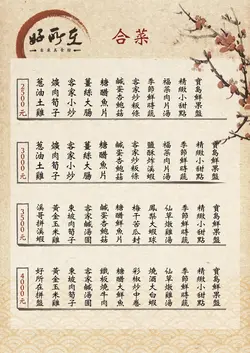 好所在
合菜
2500元
蔥油土雞
爌肉筍子
薑絲大腸
糖醋魚片
鹹蛋杏鮑菇
客家炒粄條
季節鮮時蔬
福菜肉片湯
精緻小甜點
寶島鮮果盤
3000元
蔥油土雞
爌肉筍子
客家小炒
薑絲大腸
糖醋魚片
鹹蛋杏鮑菇
客家炒粄條
鹽酥炸溪蝦
季節鮮時蔬
福菜肉片湯
精緻小甜點
寶島鮮果盤
3500元
溪哥拼溪蝦
黃金玉米雞
東坡肉筍子
客家鹹湯圓
糖醋鮮魚片
梅干苦瓜封
鳳梨大蝦球
仙草燉雞湯
季節鮮時蔬
精緻小甜點
寶島鮮果盤
4000元
好所在拼盤
黃金玉米雞
東坡肉筍子
客家鹹湯圓
鐵板燒牛肉
糖醋大鮮魚
彩椒炒中卷
燒酒大白蝦
仙草燉雞湯
季節鮮時蔬
精緻小甜點
寶島鮮果盤